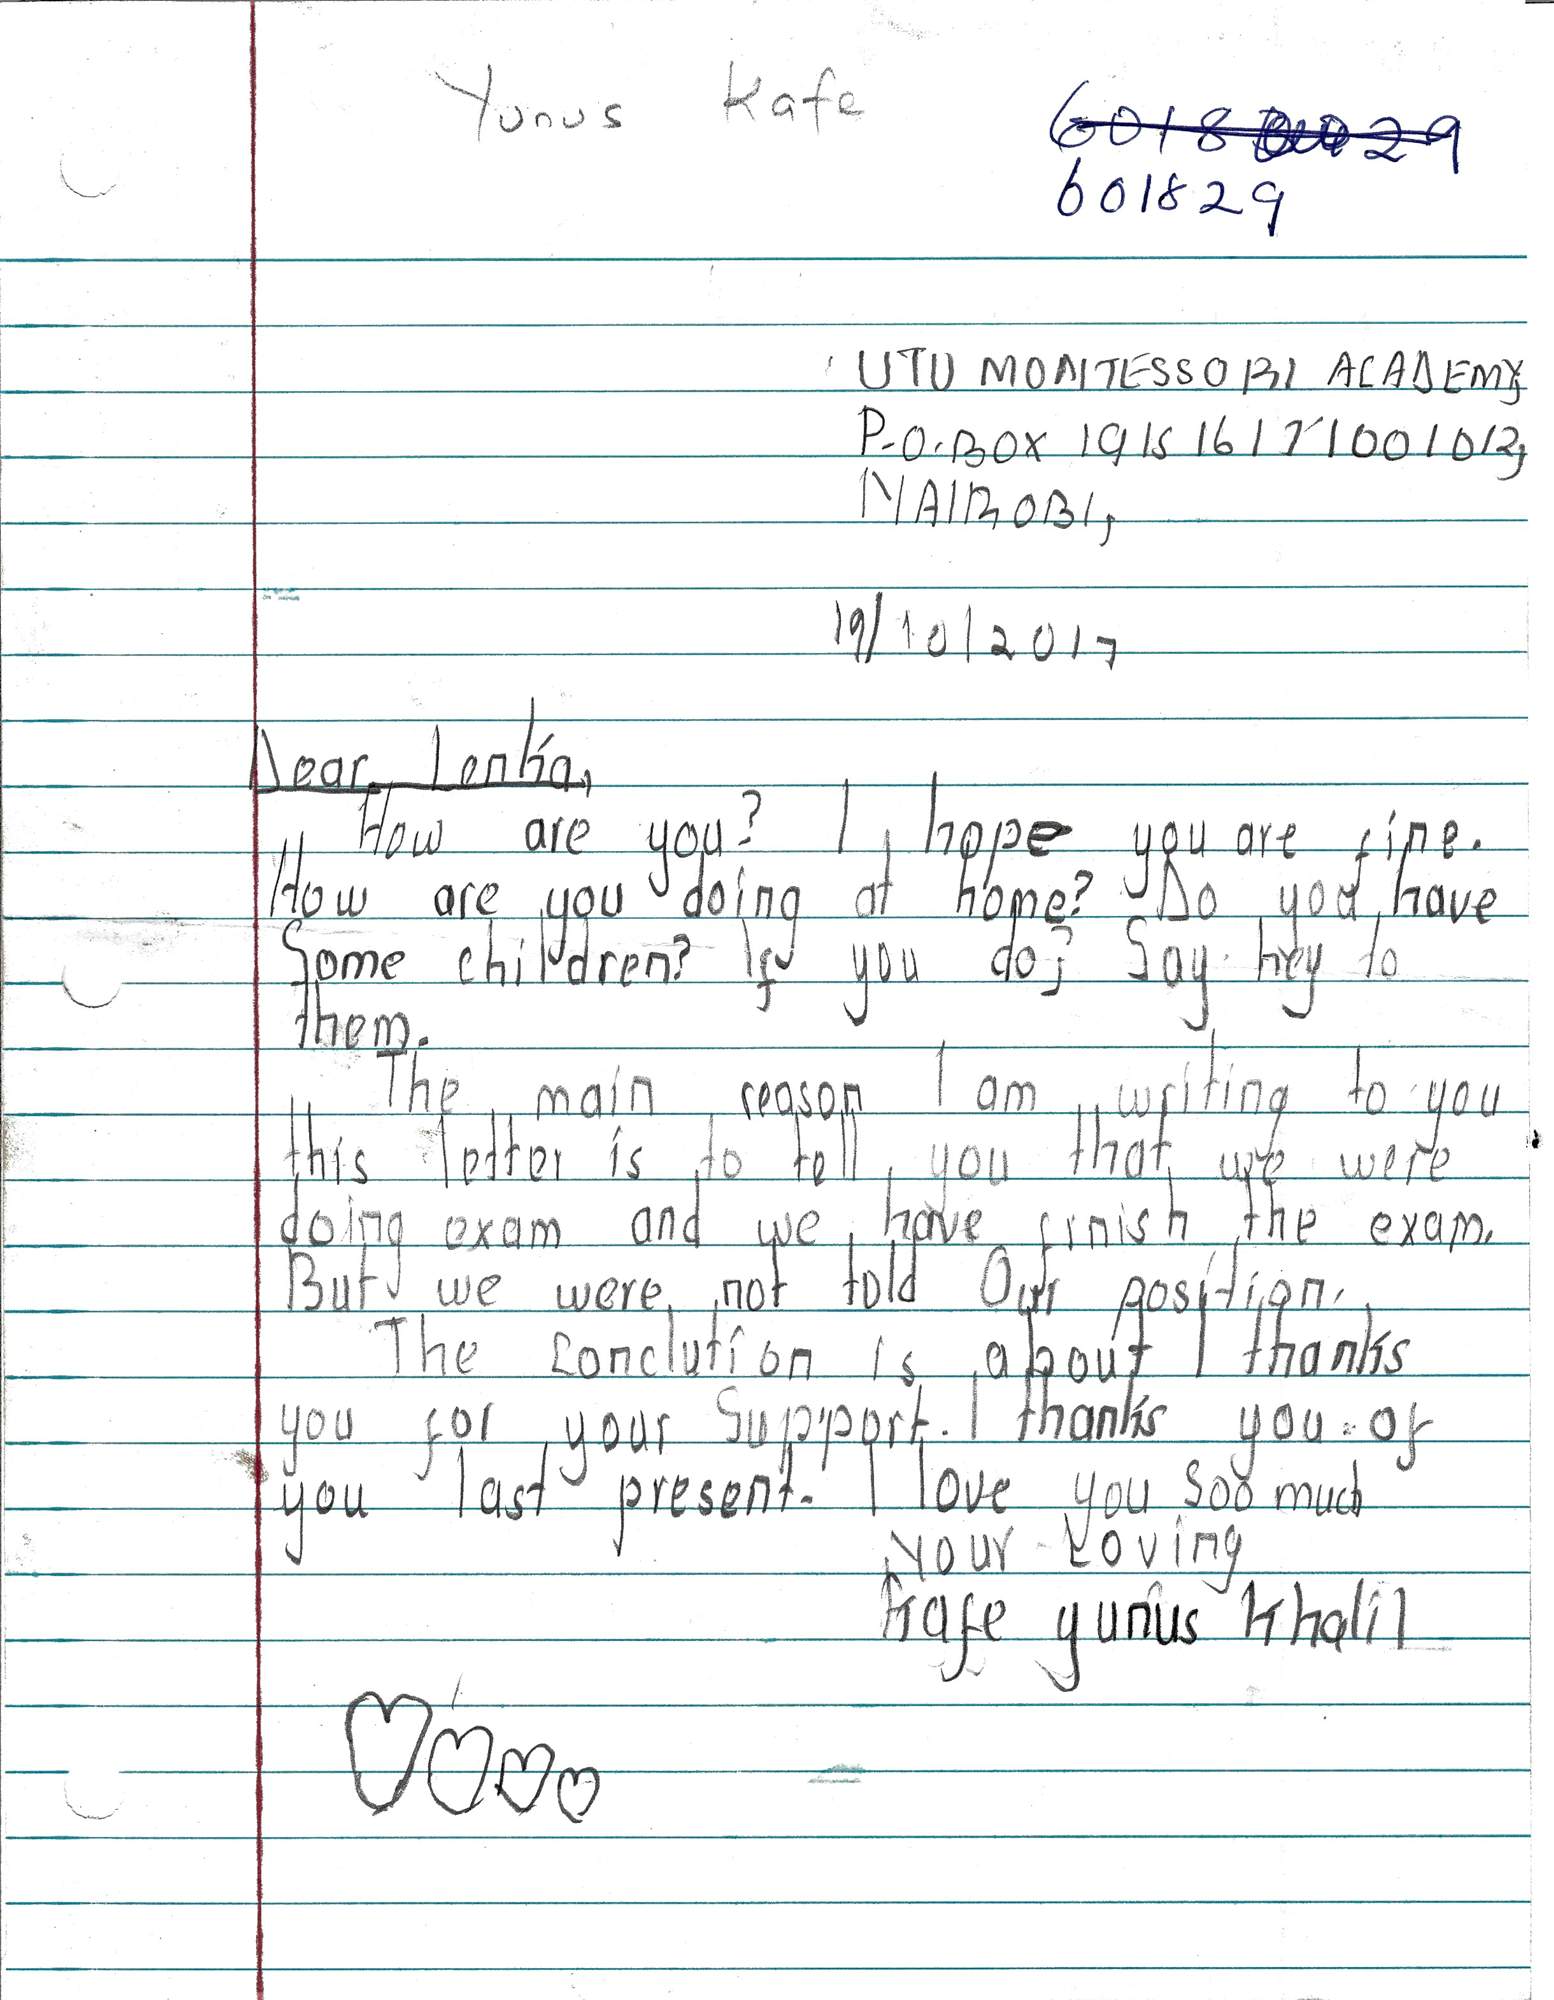 Yunus Kafe
601829
UTU MONTESSORI ACADEMY,
P.O.BOX 1915161771001012,
NAIROBI,
19/10/2017
Dear Lenka,
How are you? I hope you are fine.
How are you doing at home? Do you have
Some children? If you do; Say hey to
them.
The main reason I am writing to you
this letter is to tell you that we were
doing exam and we have finish the exam.
But we were not told Our position.
The conclution is about I thanks
you for your Support. I thanks you of
you last present. I love you soo much
your Loving
Kafe yunus Khalil